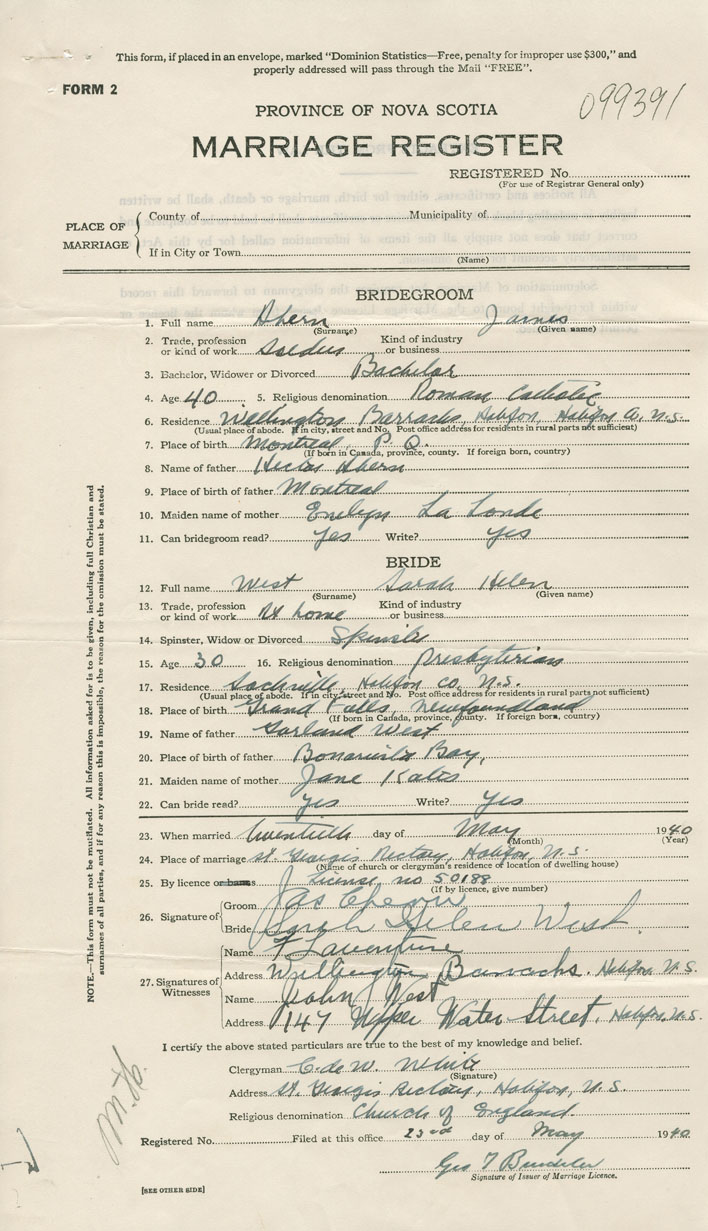 This form, if placed in an envelope, marked "Dominion Statistics—Free, penalty for improper use $300," and
properly addressed will pass through the Mail "FREE".
FORM 2
099391
PROVINCE OF NOVA SCOTIA
MARRIAGE REGISTER
REGISTERED No.
(For use of Registrar General only)
PLACE OF MARRIAGE
County of Municipality of
If in City or Town
(Name)
BRIDEGROOM
1. Full name Ahern James
(Surname) (Given name)
2. Trade, profession or kind of work Soldier Kind of industry or business
3. Bachelor, Widower or Divorced Bachelor
4. Age 40 5. Religious denomination Roman Catholic
6. Residence Wellington Barracks, Halifax, Halifax Co. N.S.
(Usual place of abode. If in city, street and No. Post office address for residents in rural parts not sufficient)
7. Place of birth Montreal, P.Q.
(If born in Canada, province, county. If foreign born, country)
8. Name of father Hector Ahern
9. Place of birth of father Montreal
10. Maiden name of mother Evelyn La Londe
11. Can bridegroom read? Yes Write? Yes
BRIDE
12. Full name West Sarah Helen
(Surname) (Given name)
13. Trade, profession or kind of work At home Kind of industry or business
14. Spinster, Widow or Divorced Spinster
15. Age 30 16. Religious denomination Presbyterian
17. Residence Sackville, Halifax Co. N.S.
(Usual place of abode. If in city, street and No. Post office address for residents in rural parts not sufficient)
18. Place of birth Grand Falls, Newfoundland
(If born in Canada, province, county. If foreign born, country)
19. Name of father Garland West
20. Place of birth of father Bonavista Bay,
21. Maiden name of mother Jane
22. Can bride read? Yes Write? Yes
23. When married twentieth day of May 1940
(Month) (Year)
24. Place of marriage St. George's Rectory, Halifax, N.S.
(Name of church or clergyman's residence or location of dwelling house)
25. By licence or banns License, no 50188
(If by licence, give number)
26. Signature of
Groom Jas Ahearn
Bride Sarah Helen West.
27. Signatures of Witnesses
Name F Laventure
Address Wellington Barracks. Halifax. N.S.
Name John J West
Address 147 Upper Water Street. Halifax. N.S.
I certify the above stated particulars are true to the best of my knowledge and belief.
Clergyman C. de W. White
(Signature)
Address St. George's Rectory, Halifax, N.S.
Religious denomination Church of England.
Registered No. Filed at this office 23rd day of May 1940
Geo T
Signature of Issuer of Marriage Licence.
[SEE OTHER SIDE]
NOTE.—This form must not be mutilated. All information asked for is to be given, including full Christian and
surnames of all parties, and if for any reason this is impossible, the reason for the omission must be stated.